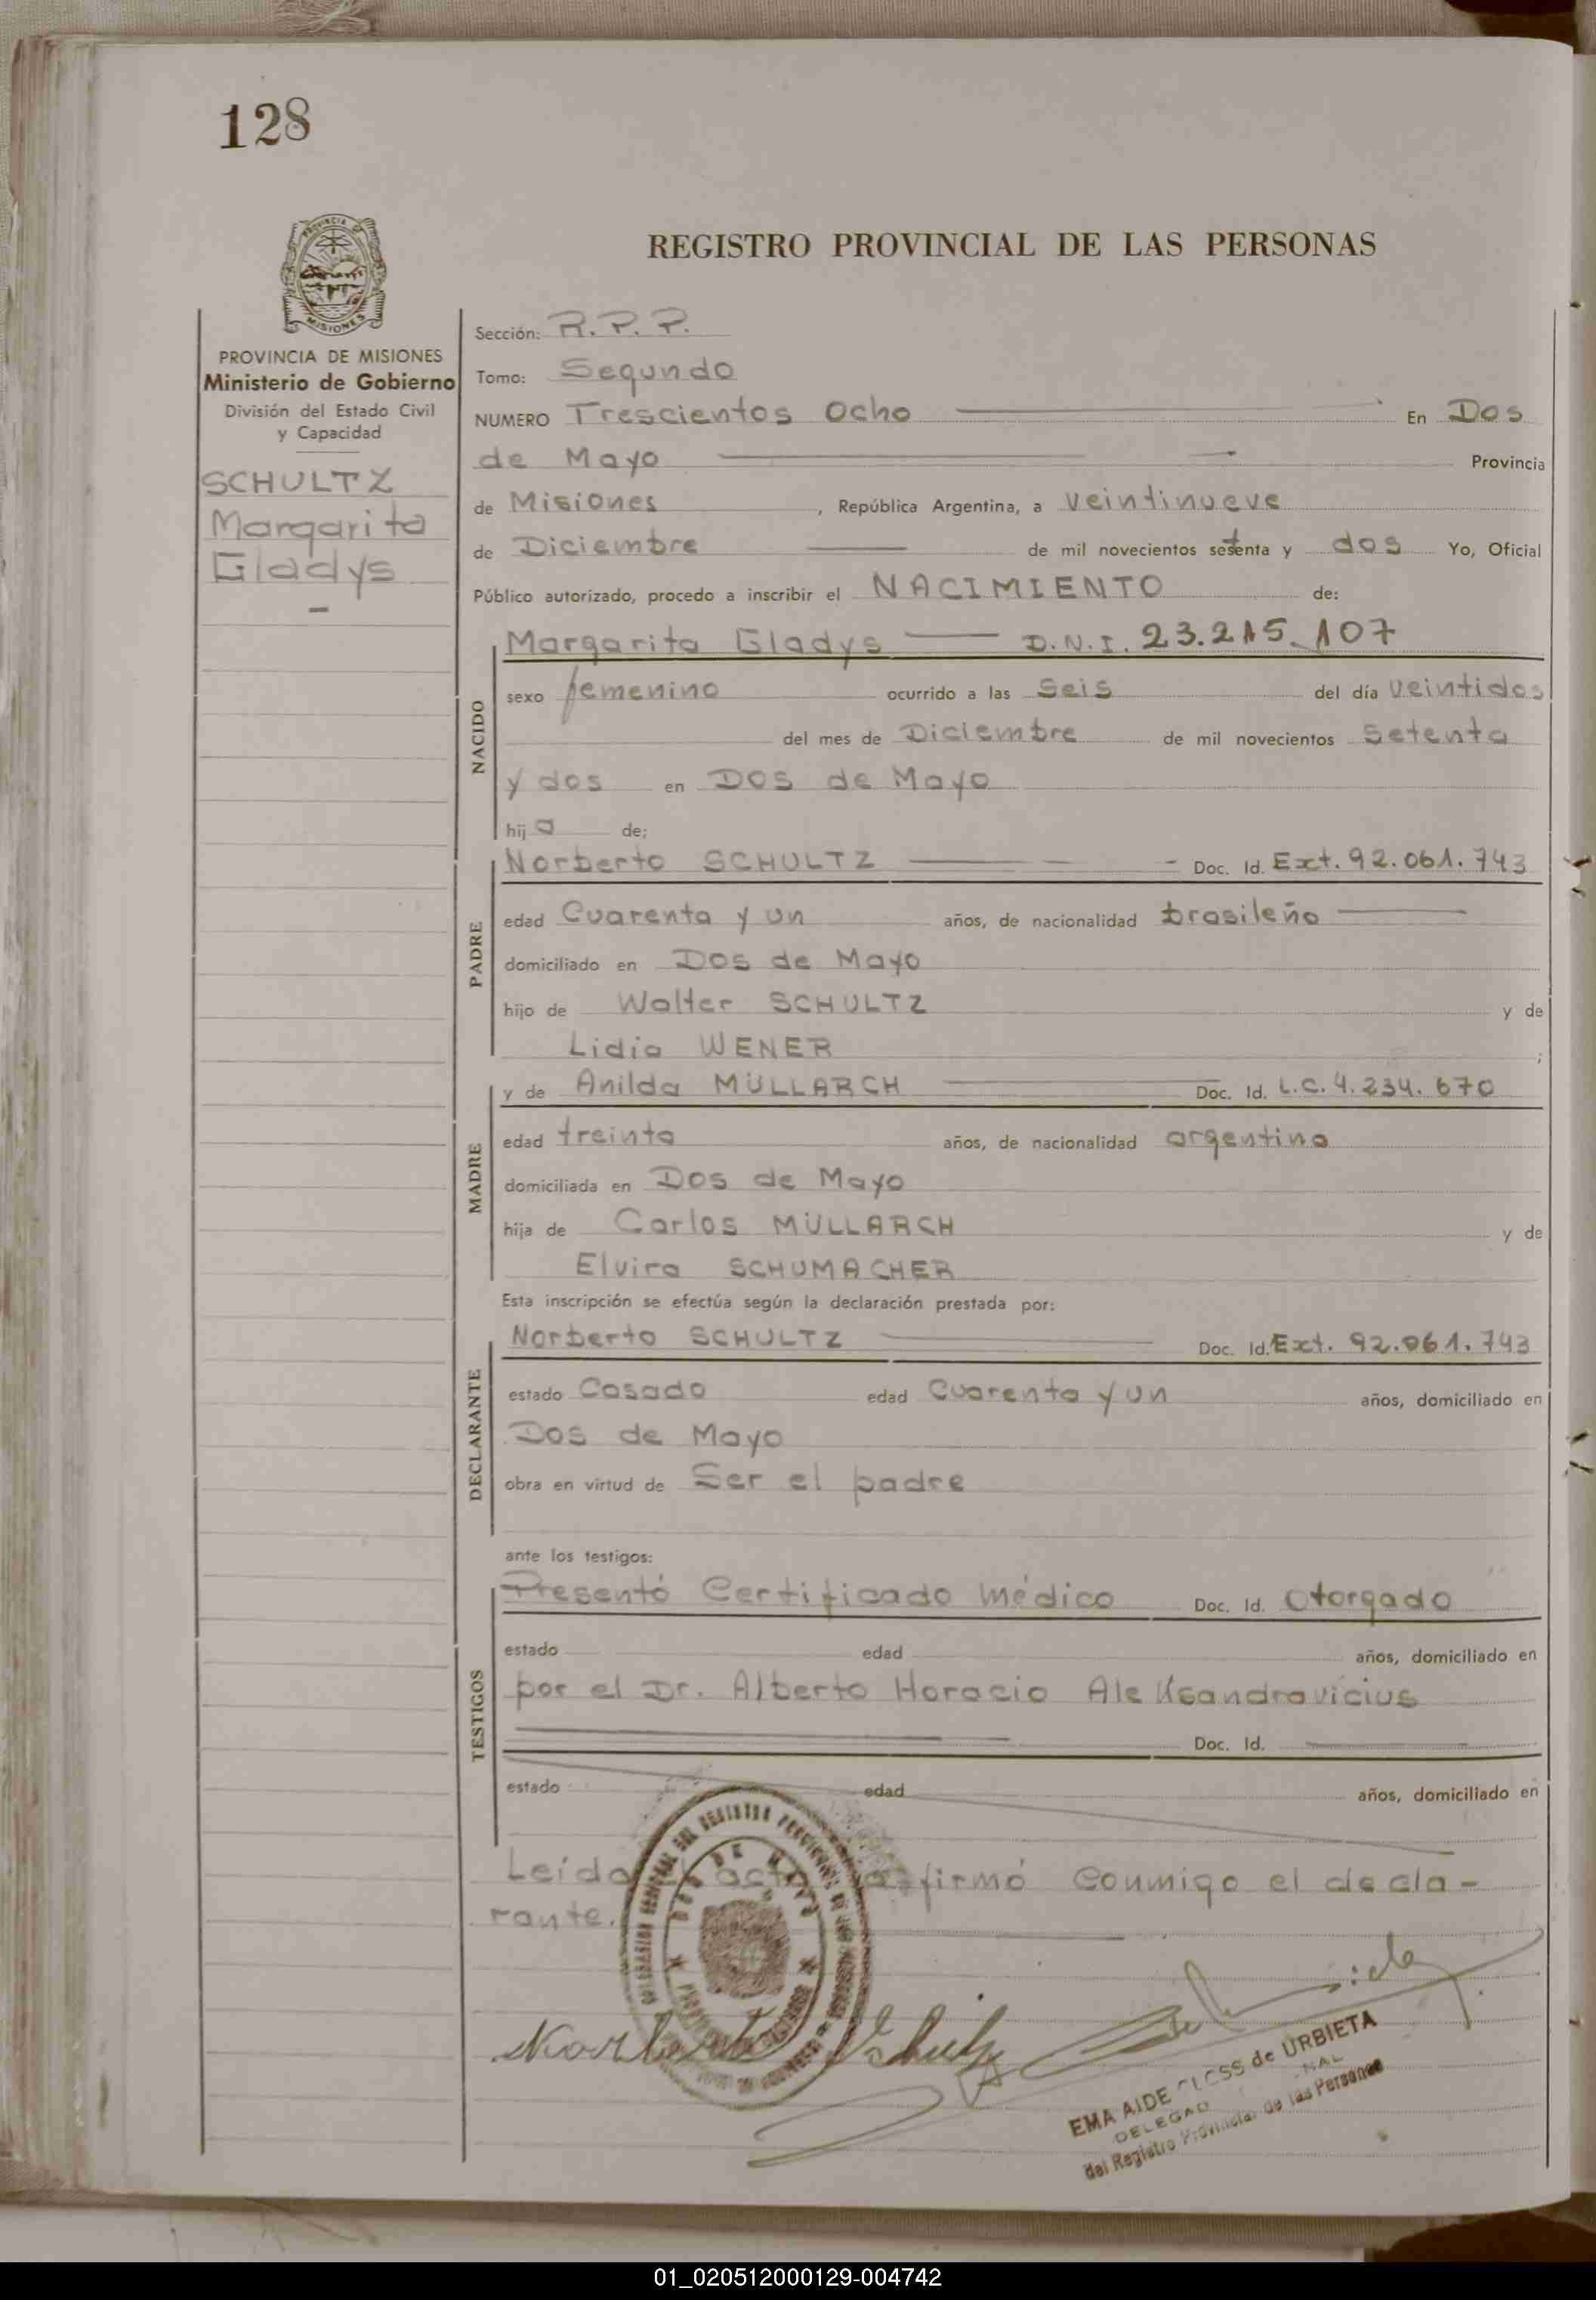 128
REGISTRO PROVINCIAL DE LAS PERSONAS
PROVINCIA DE MISIONES
Ministerio de Gobierno
División del Estado Civil
y Capacidad
SCHULTZ
Margarita
Gladys
Sección: R.P.P.
Tomo: Segundo
NUMERO Trescientos Ocho En Dos
de Mayo Provincia
de Misiones, República Argentina, a veintinueve
de Diciembre de mil novecientos setenta y dos Yo, Oficial
Público autorizado, procedo a inscribir el NACIMIENTO de:
NACIDO
Margarita Gladys D.N.I. 23.215.107
sexo femenino ocurrido a las seis del día veintidos
del mes de Diciembre de mil novecientos setenta
y dos en Dos de Mayo
hija de;
PADRE
Norberto SCHULTZ Doc. Id. Ext. 92.061.743
edad Cuarenta y un años, de nacionalidad brasileño
domiciliado en Dos de Mayo
hijo de Walter SCHULTZ y de
Lidia WENER ;
MADRE
y de Anilda MÜLLARCH Doc. Id. L.C. 4.234.670
edad treinta años, de nacionalidad argentina
domiciliada en Dos de Mayo
hija de Carlos MÜLLARCH y de
Elvira SCHUMACHER
Esta inscripción se efectúa según la declaración prestada por:
DECLARANTE
Norberto SCHULTZ Doc. Id. Ext. 92.061.743
estado Casado edad Cuarenta y un años, domiciliado en
Dos de Mayo
obra en virtud de Ser el padre
ante los testigos:
TESTIGOS
Presentó Certificado médico Doc. Id. Otorgado
estado edad años, domiciliado en
por el Dr. Alberto Horacio Aleksandravicius
Doc. Id.
estado edad años, domiciliado en
Leída acta firmó conmigo el decla-
rante.
DOS DE MAYO
Norberto Schultz
EMA AIDE de URBIETA
del Registro Provincial de las Personas
01_020512000129-004742